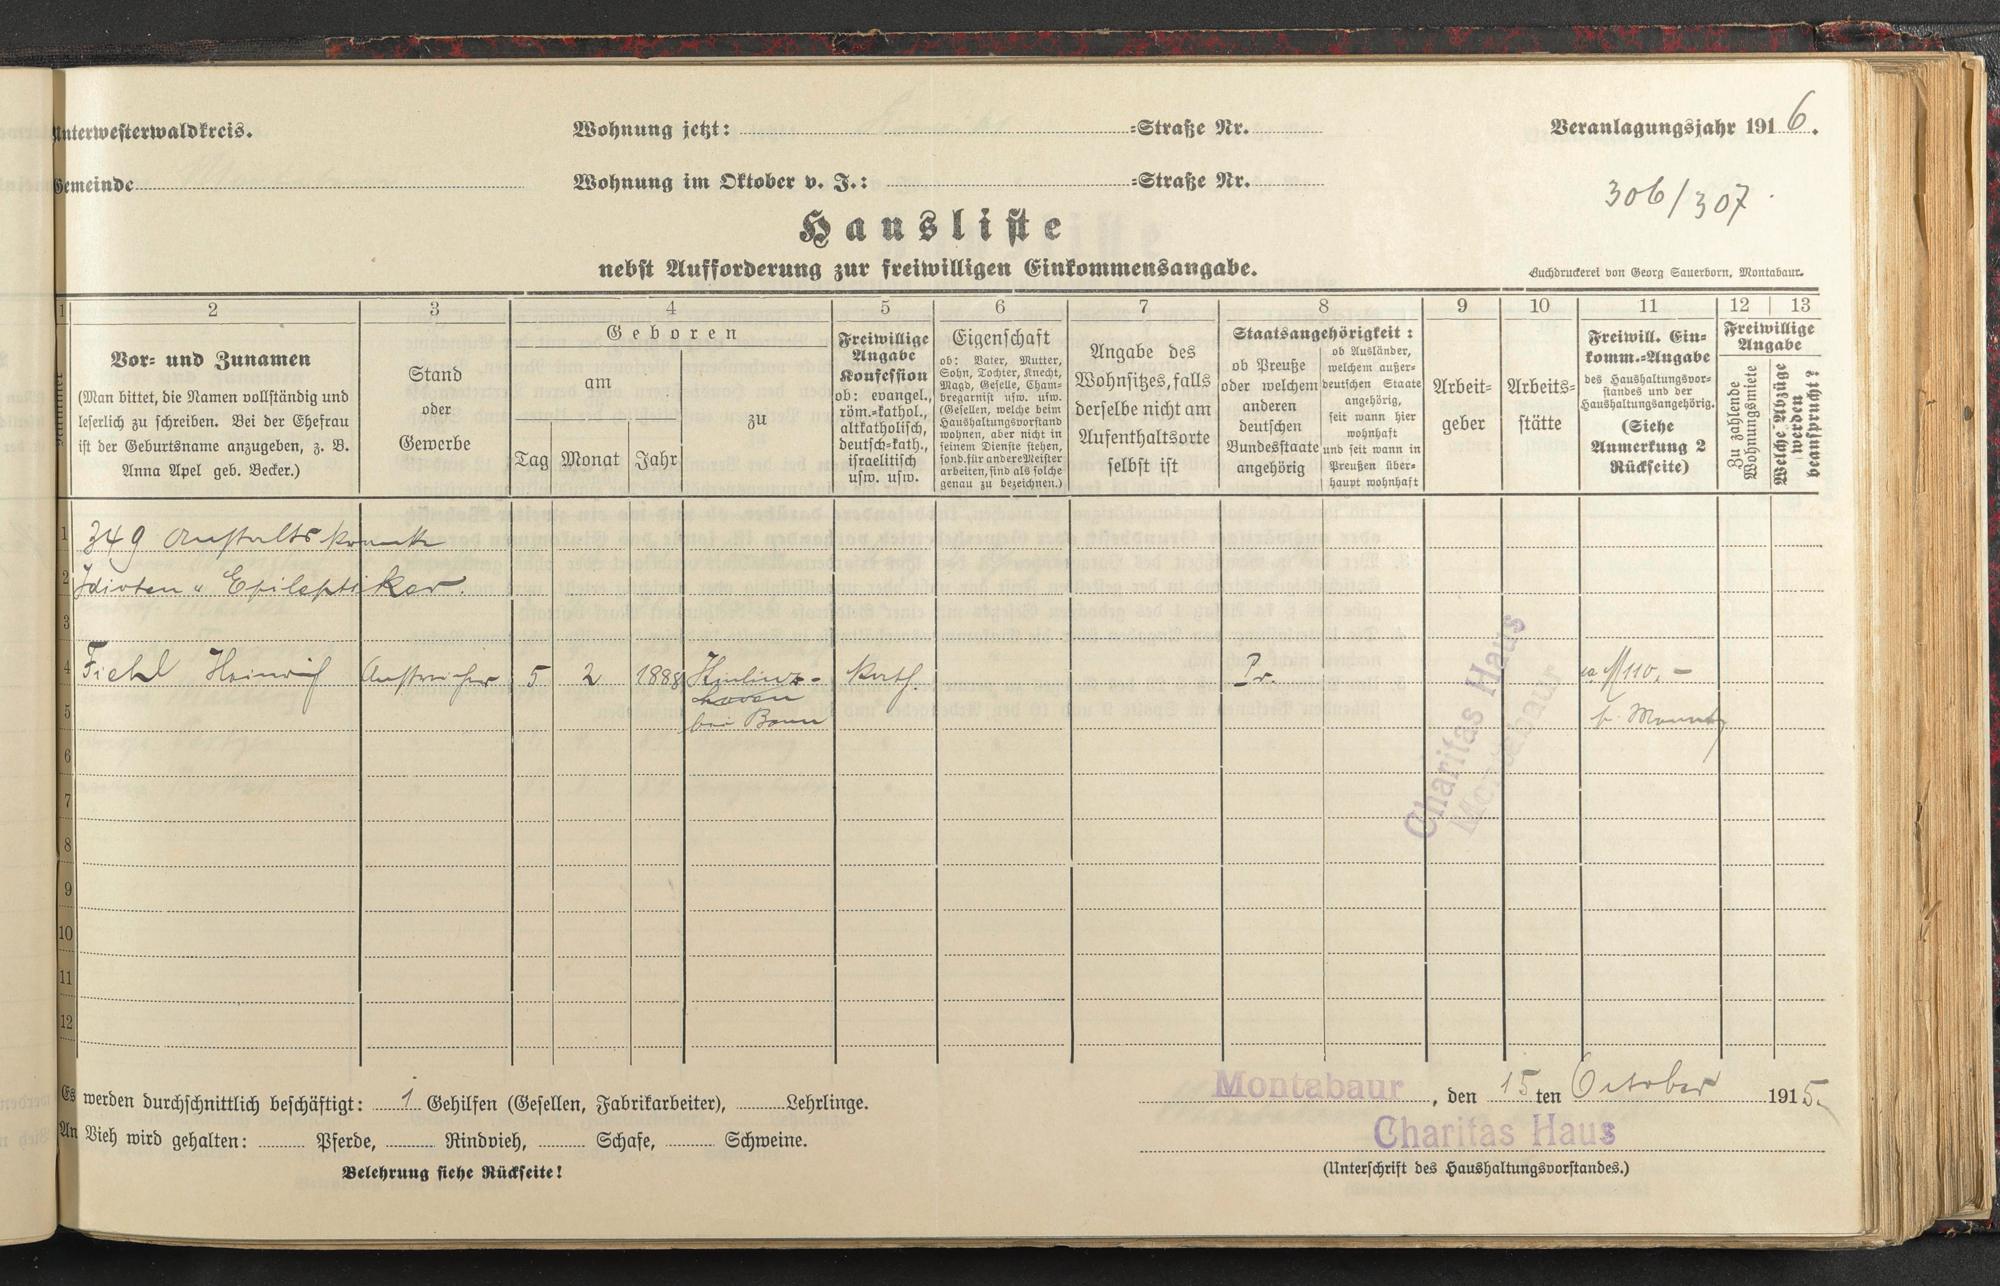 Unterwesterwaldkreis.
Wohnung jetzt: =Straße Nr.
Veranlagungsjahr 1916.
Gemeinde
Wohnung im Oktober v. J.: =Straße Nr.
306/307.
Hausliste
nebst Aufforderung zur freiwilligen Einkommensangabe.
Buchdruckerei von Georg Sauerborn, Montabaur.
1 2 3 4 5 6 7 8 9 10 11 12 13
Nummer
Vor- und Zunamen
(Man bittet, die Namen vollständig und
leserlich zu schreiben. Bei der Ehefrau
ist der Geburtsname anzugeben, z. B.
Anna Apel geb. Becker.)
Stand
oder
Gewerbe
Geboren
am
Tag Monat Jahr
zu
Freiwillige
Angabe
Konfession
ob: evangel.,
röm.=kathol.,
altkatholisch,
deutsch=kath.,
israelitisch
usw. usw.
Eigenschaft
ob: Vater, Mutter,
Sohn, Tochter, Knecht,
Magd, Geselle, Cham-
bregarnist usw. usw.
(Gesellen, welche beim
Haushaltungsvorstand
wohnen, aber nicht in
seinem Dienste stehen,
sond. für andere Meister
arbeiten, sind als solche
genau zu bezeichnen.)
Angabe des
Wohnsitzes, falls
derselbe nicht am
Aufenthaltsorte
selbst ist
Staatsangehörigkeit:
ob Preuße
oder welchem
anderen
deutschen
Bundesstaate
angehörig
ob Ausländer,
welchem außer=
deutschen Staate
angehörig,
seit wann hier
wohnhaft
und seit wann in
Preußen über=
haupt wohnhaft
Arbeit=
geber
Arbeits=
stätte
Freiwill. Ein=
komm.=Angabe
des Haushaltungsvor=
standes und der
Haushaltungsangehörig.
(Siehe
Anmerkung 2
Rückseite)
Freiwillige
Angabe
Zu zahlende
Wohnungsmiete
Welche Abzüge
werden
beansprucht?
1 349 Anstaltskranke
2 Idioten u. Epileptiker.
3
4 Fiehl Heinrich Anstreicher 5 2 1888 Kath Pr. 110,–
5 bei Bonn p. Monat
6
7
8
9
10
11
12
Charitas Haus
Montabaur
Es werden durchschnittlich beschäftigt: 1 Gehilfen (Gesellen, Fabrikarbeiter), Lehrlinge.
Montabaur, den 15ten October 1915.
An Vieh wird gehalten: Pferde, Rindvieh, Schafe, Schweine.
Charitas Haus
Belehrung siehe Rückseite!
(Unterschrift des Haushaltungsvorstandes.)